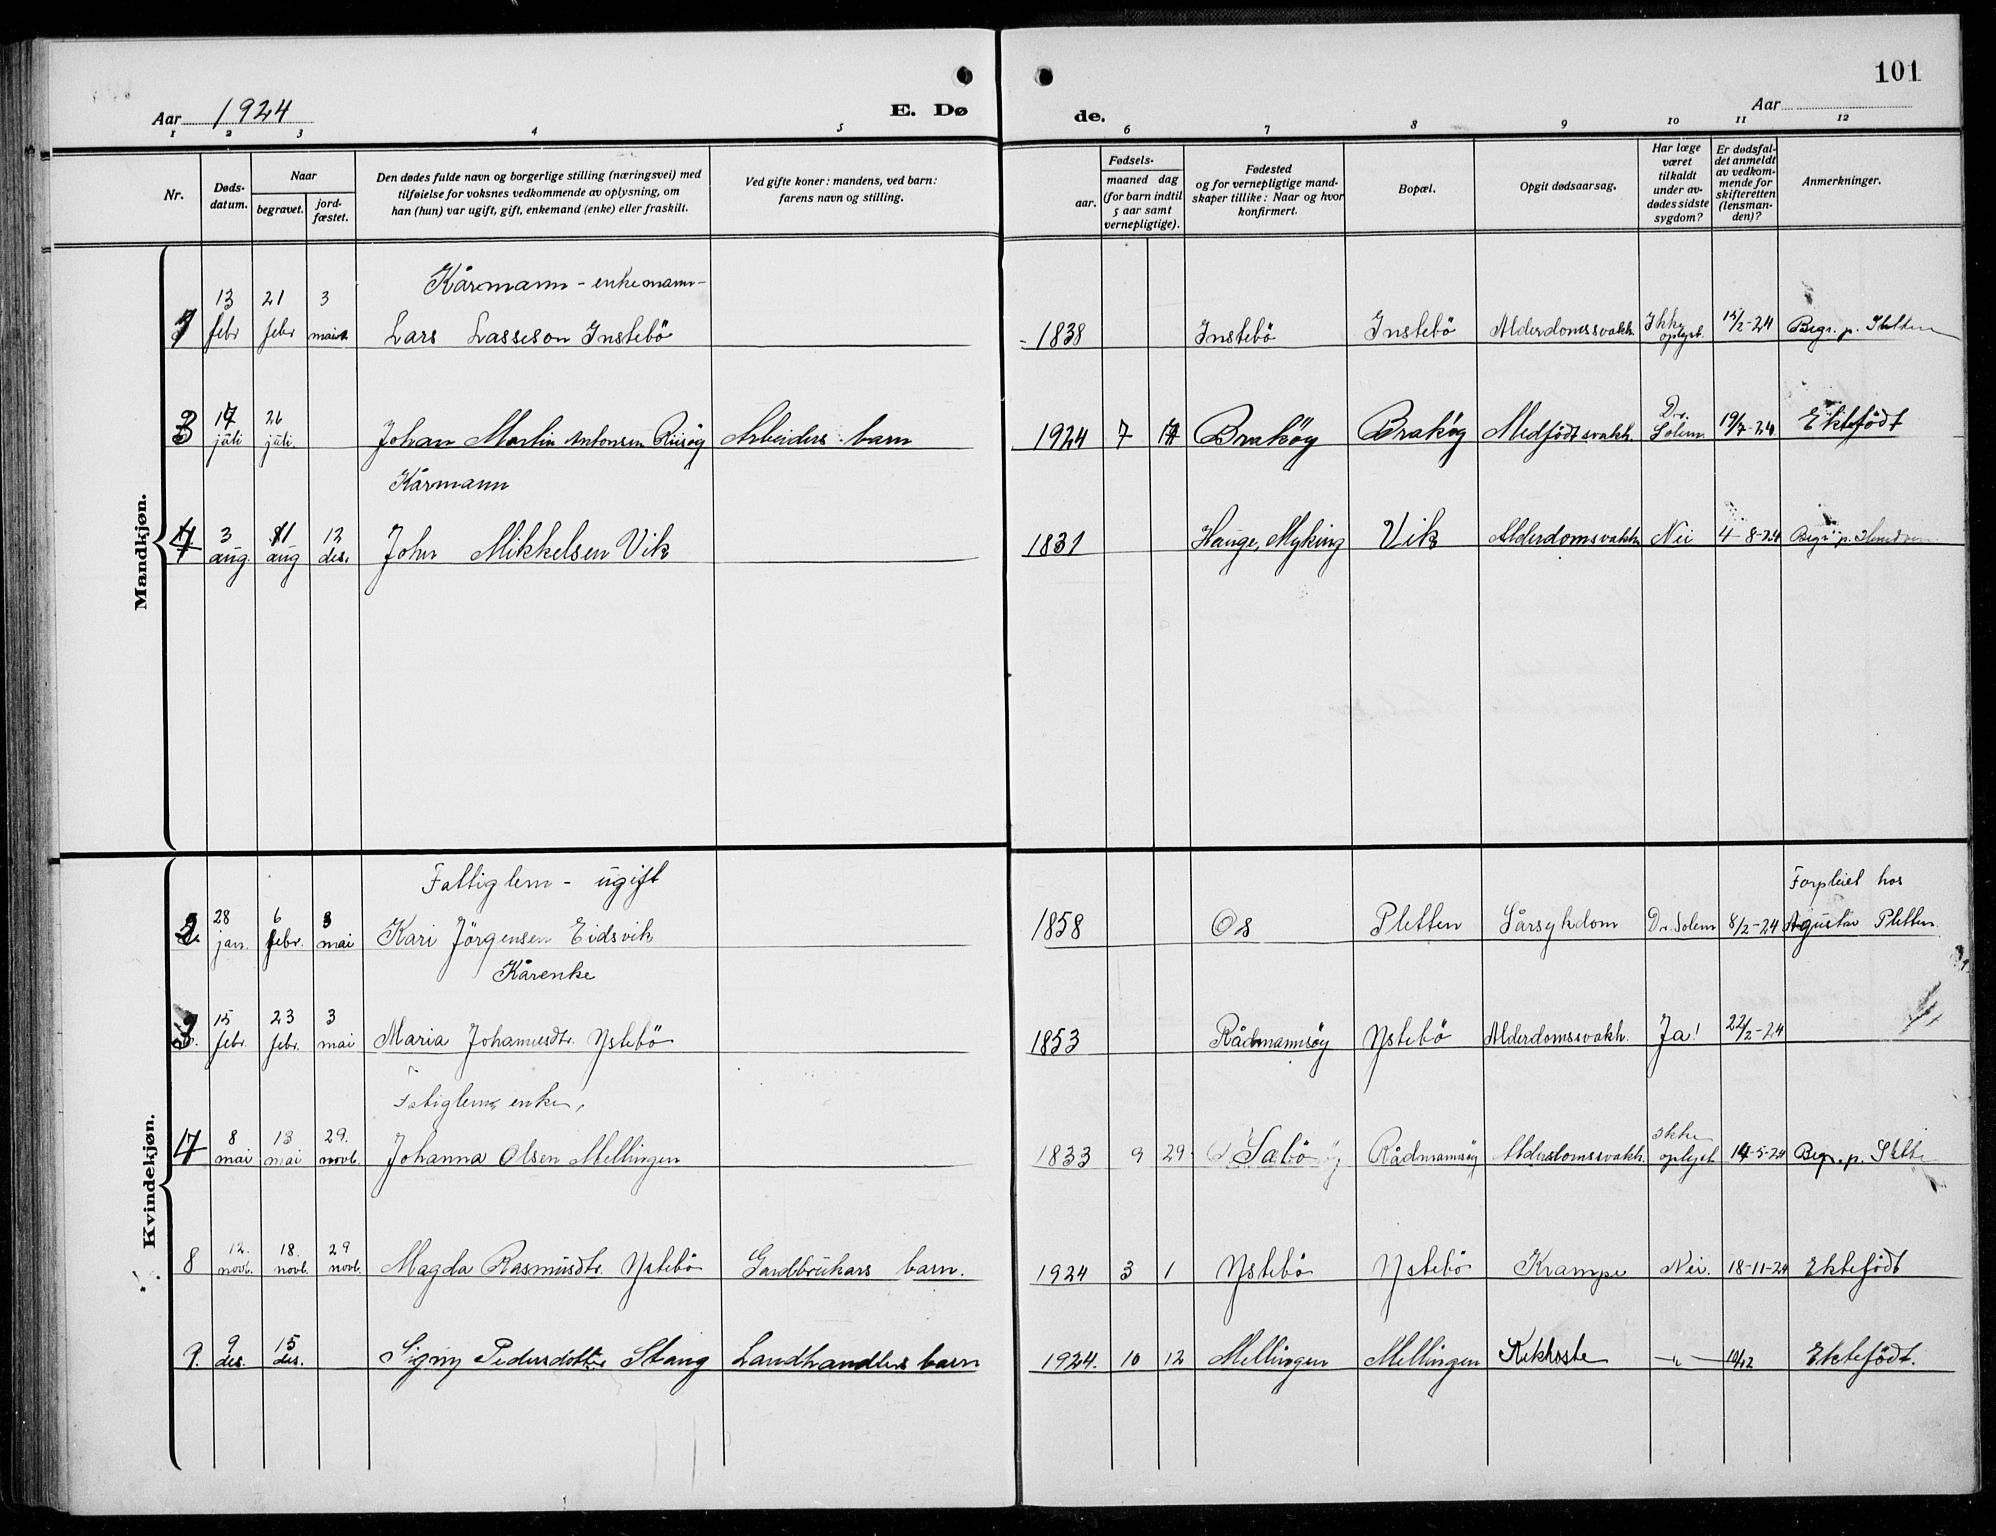 101
Aar 1924
E. Dø
de.
Aar
1 2 3 4 5 6 7 8 9 10 11 12
Nr.
Døds-
datum.
Naar
begravet.
jord-
fæstet.
Den dødes fulde navn og borgerlige stilling (næringsvei) med
tilføielse for voksnes vedkommende av oplysning, om
han (hun) var ugift, gift, enkemand (enke) eller fraskilt.
Ved gifte koner: mandens, ved barn:
farens navn og stilling.
Fødsels-
aar.
maaned dag
(for barn indtil
5 aar samt
vernepligtige).
Fødested
og for vernepligtige mand-
skaper tillike: Naar og hvor
konfirmert.
Bopæl.
Opgit dødsaarsag.
Har læge
været
tilkaldt
under av-
dødes sidste
sygdom?
Er dødsfal-
det anmeldt
av vedkom-
mende for
skifteretten
(lensman-
den)?
Anmerkninger.
Mandkjøn.
Kårmann - enkemann -
13 21 3
febr febr mai
Lars Lasseson Instebö
1838 Instebö Instebö Alderdomssvakh. Ikke oplyst. 15/2-24 Begr. p.
3 17 26
juli juli.
Johan Martin Antonsen Risöy Arbeiders barn
1924 7 17 Brakøy Brakøy Medfödt svakh. Dr. Solem. 19/7-24 Ektefödt
Kårmann
4 3 11 12
aug. aug des.
John Mikkelsen Vik
1831 Hauge, Myking Vik Alderdomsvakh Nei 4-8-24 Begr. p.
Kvindekjøn.
Fattiglem - ugift
Forpleiet hos
2. 28 6 3
jan. febr. mai
Kari Jörgensen Eidsvik
1858 Os Pletten Sårsykdom Dr. Solem 8/2-24 Agustav Pletten.
Kårenke
3. 15 23 3
febr. febr. mai
Maria Johannesdtr. Ystebö
1853 Rådmannsöy Ystebö Alderdomssvakh. Ja! 22/2-24
Fatiglem, enke,
8 13 29.
mai mai novb.
Johanna Olsen Mellingen
1833 9 29 Sæbö Rådmannsöy Alderdomssvakh. Ikke oplyst 14-5-24 Begr. p.
8 12. 18. 29
novb. novb. novb.
Magda Rasmusdtr. Ystebö Gardbrukars barn.
1924 3 1 Ystebö Ystebö Krampe Nei. 18-11-24 Ektefödt
9. 9 15
des. des.
Signy Pedersdotter Stang Landhandlers barn
1924. 10 12 Mellingen Mellingen Kikhoste -"- 10/12 Ektefödt.